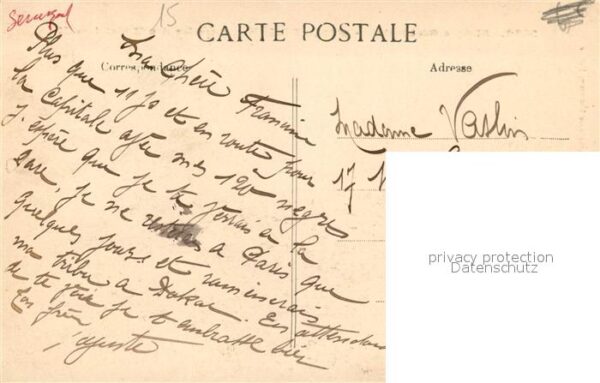 Senegal
15
CARTE POSTALE
Correspondance
Adresse
Ma Chère Francine
Plus que 11 jo et en route pour
la Capitale avec mes 120 negre
j'espère que je te verrai a la
Gare, je ne resterai a Paris que
quelques jours et ramènerais
ma tribu a Dakar. En attendant
de te voir je t'embrasse bien
Ton frère
Auguste
Madame Vaslin
17
privacy protection
Datenschutz